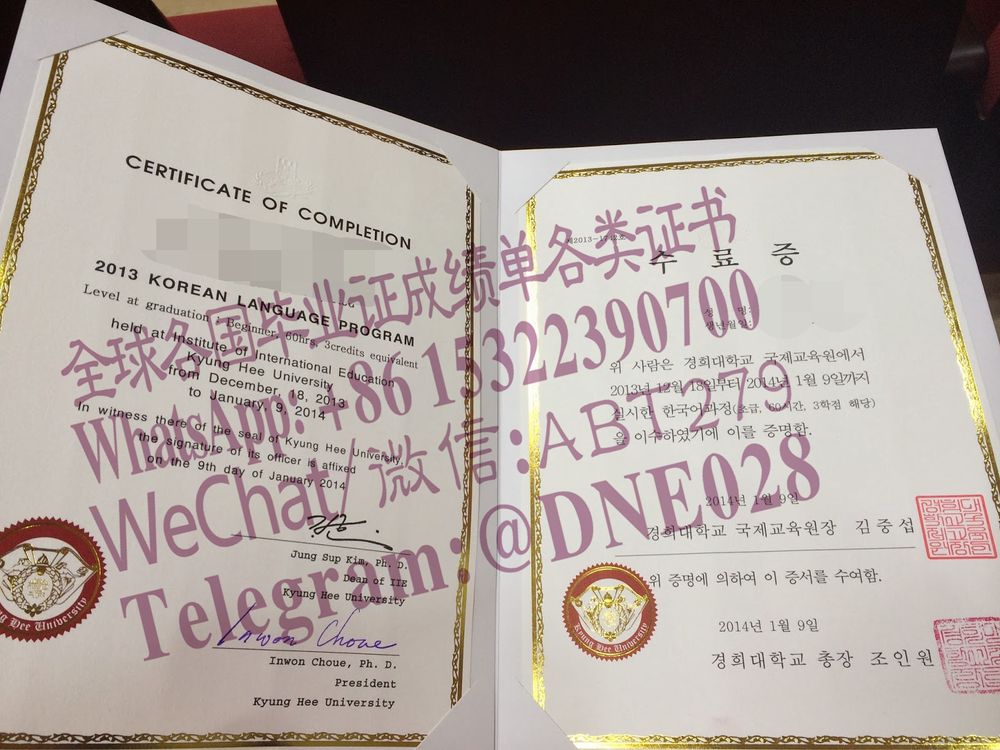 CERTIFICATE OF COMPLETION
2013 KOREAN LANGUAGE PROGRAM
Level at graduation : Beginner, 60hrs, 3credits equivalent
held at Institute of International Education
Kyung Hee University
from December, 18, 2013
to January, 9, 2014
In witness there of the seal of Kyung Hee University,
the signature of its officer is affixed
on the 9th day of January 2014
Jung Sup Kim, Ph. D.
Dean of IIE
Kyung Hee University
Inwon Choue
Inwon Choue, Ph. D.
President
Kyung Hee University
Kyung Hee University
수 료 증
성 명:
생년월일:
위 사람은 경희대학교 국제교육원에서
2013년 12월 18일부터 2014년 1월 9일까지
실시한 한국어과정(초급, 60시간, 3학점 해당)
을 이수하였기에 이를 증명함.
2014년 1월 9일
경희대학교 국제교육원장 김중섭
위 증명에 의하여 이 증서를 수여함.
2014년 1월 9일
경희대학교 총장 조인원
Kyung Hee University
全球各国毕业证成绩单各类证书
WhatsApp: +86 15322390700
WeChat/微信:AB-1279
Telegram:@DNE028